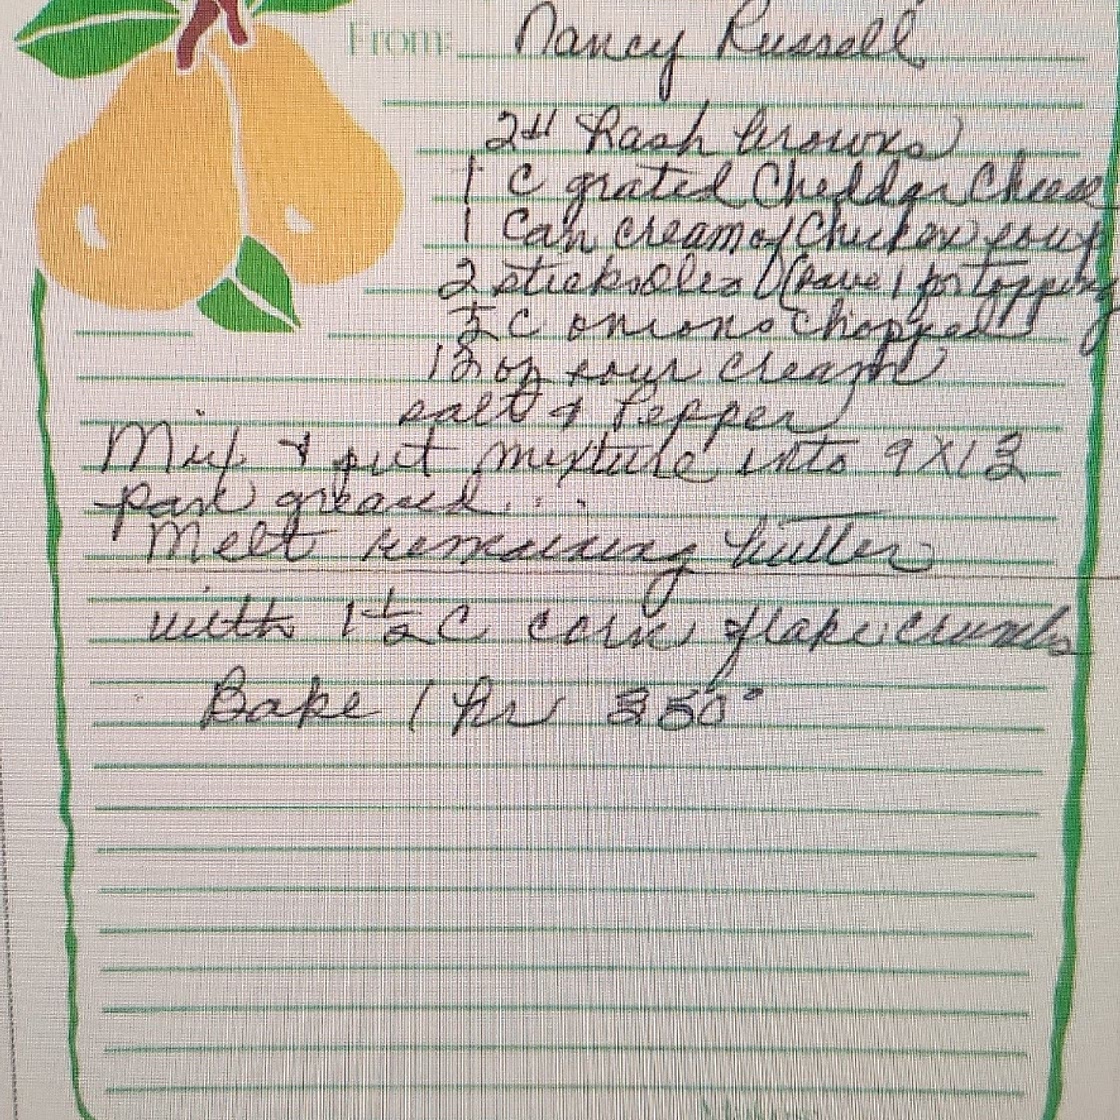 From: Nancy Russell
2# hash browns
1 C grated Cheddar Cheese
1 Can cream of Chicken soup
2 sticks Oleo (save 1 for topping
1/2 C onions chopped
12 oz sour cream
salt & Pepper
Mix & put mixture into 9X13
pan greased...
Melt remaining butter
with 1 1/2 C corn flake crumbs
Bake 1 hr 350°